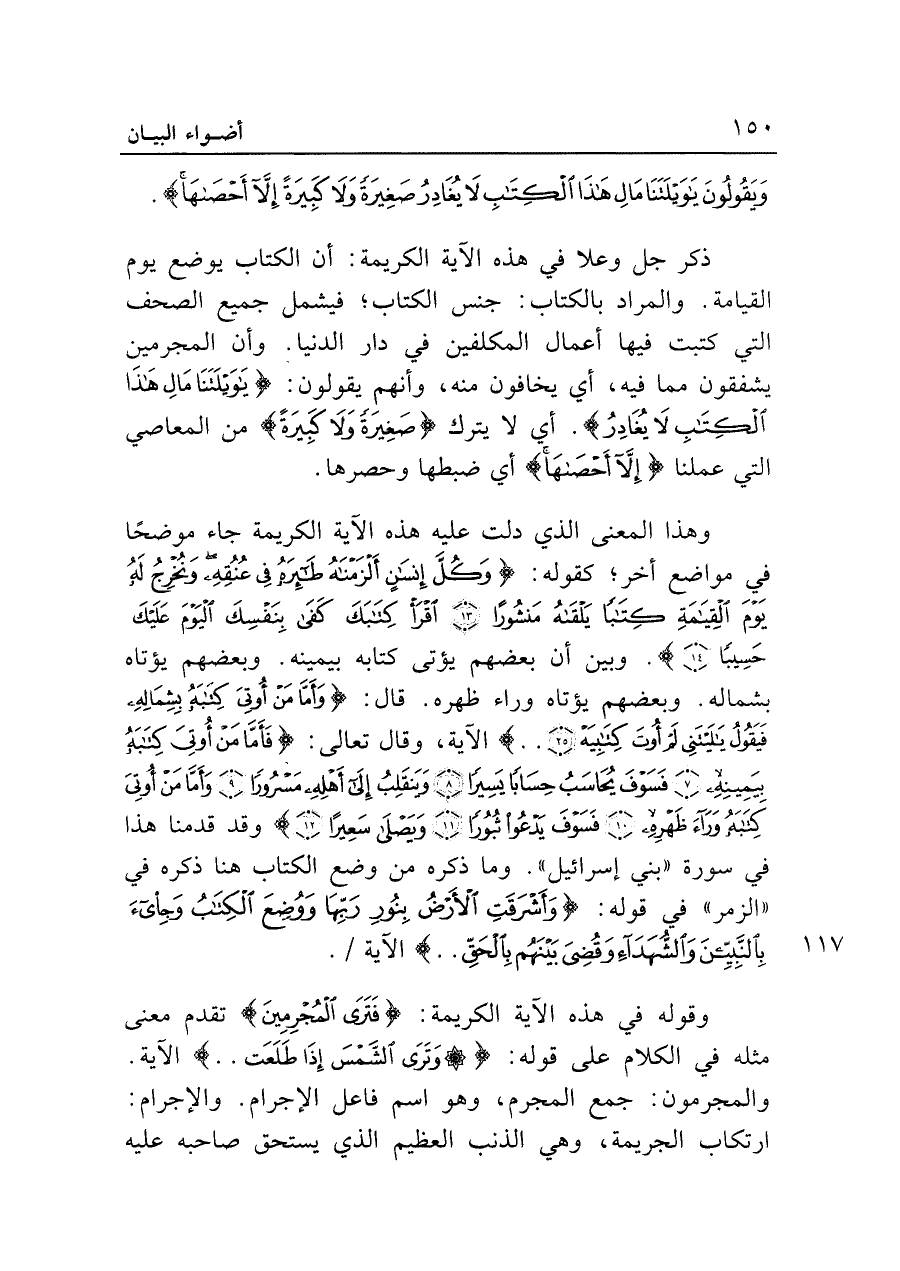 ١٥٠ أضواء البيان
وَيَقُولُونَ يَٰوَيْلَتَنَا مَالِ هَٰذَا ٱلْكِتَٰبِ لَا يُغَادِرُ صَغِيرَةً وَلَا كَبِيرَةً إِلَّآ أَحْصَىٰهَا ۚ﴾ .
ذكر جل وعلا في هذه الآية الكريمة: أن الكتاب يوضع يوم
القيامة. والمراد بالكتاب: جنس الكتاب؛ فيشمل جميع الصحف
التي كتبت فيها أعمال المكلفين في دار الدنيا. وأن المجرمين
يشفقون مما فيه، أي يخافون منه، وأنهم يقولون: ﴿ يَٰوَيْلَتَنَا مَالِ هَٰذَا
ٱلْكِتَٰبِ لَا يُغَادِرُ ﴾ . أي لا يترك ﴿ صَغِيرَةً وَلَا كَبِيرَةً ﴾ من المعاصي
التي عملنا ﴿ إِلَّآ أَحْصَىٰهَا ۚ﴾ أي ضبطها وحصرها.
وهذا المعنى الذي دلت عليه هذه الآية الكريمة جاء موضحًا
في مواضع أخر؛ كقوله: ﴿ وَكُلَّ إِنسَٰنٍ أَلْزَمْنَٰهُ طَٰٓئِرَهُۥ فِى عُنُقِهِۦ ۖ وَنُخْرِجُ لَهُۥ
يَوْمَ ٱلْقِيَٰمَةِ كِتَٰبًا يَلْقَىٰهُ مَنشُورًا ١٣ ٱقْرَأْ كِتَٰبَكَ كَفَىٰ بِنَفْسِكَ ٱلْيَوْمَ عَلَيْكَ
حَسِيبًا ١٤ ﴾ . وبين أن بعضهم يؤتى كتابه بيمينه. وبعضهم يؤتاه
بشماله. وبعضهم يؤتاه وراء ظهره. قال: ﴿ وَأَمَّا مَنْ أُوتِىَ كِتَٰبَهُۥ بِشِمَالِهِۦ
فَيَقُولُ يَٰلَيْتَنِى لَمْ أُوتَ كِتَٰبِيَهْ ٢٥ . . ﴾ الآية، وقال تعالى: ﴿ فَأَمَّا مَنْ أُوتِىَ كِتَٰبَهُۥ
بِيَمِينِهِۦ ٧ فَسَوْفَ يُحَاسَبُ حِسَابًا يَسِيرًا ٨ وَيَنقَلِبُ إِلَىٰٓ أَهْلِهِۦ مَسْرُورًا ٩ وَأَمَّا مَنْ أُوتِىَ
كِتَٰبَهُۥ وَرَآءَ ظَهْرِهِۦ ١٠ فَسَوْفَ يَدْعُوا۟ ثُبُورًا ١١ وَيَصْلَىٰ سَعِيرًا ١٢ ﴾ وقد قدمنا هذا
في سورة «بني إسرائيل». وما ذكره من وضع الكتاب هنا ذكره في
«الزمر» في قوله: ﴿ وَأَشْرَقَتِ ٱلْأَرْضُ بِنُورِ رَبِّهَا وَوُضِعَ ٱلْكِتَٰبُ وَجِا۟ىٓءَ
بِٱلنَّبِيِّۦنَ وَٱلشُّهَدَآءِ وَقُضِىَ بَيْنَهُم بِٱلْحَقِّ . . ﴾ الآية / . ١١٧
وقوله في هذه الآية الكريمة: ﴿ فَتَرَى ٱلْمُجْرِمِينَ ﴾ تقدم معنى
مثله في الكلام على قوله: ﴿ ۞ وَتَرَى ٱلشَّمْسَ إِذَا طَلَعَت . . ﴾ الآية.
والمجرمون: جمع المجرم، وهو اسم فاعل الإجرام. والإجرام:
ارتكاب الجريمة، وهي الذنب العظيم الذي يستحق صاحبه عليه